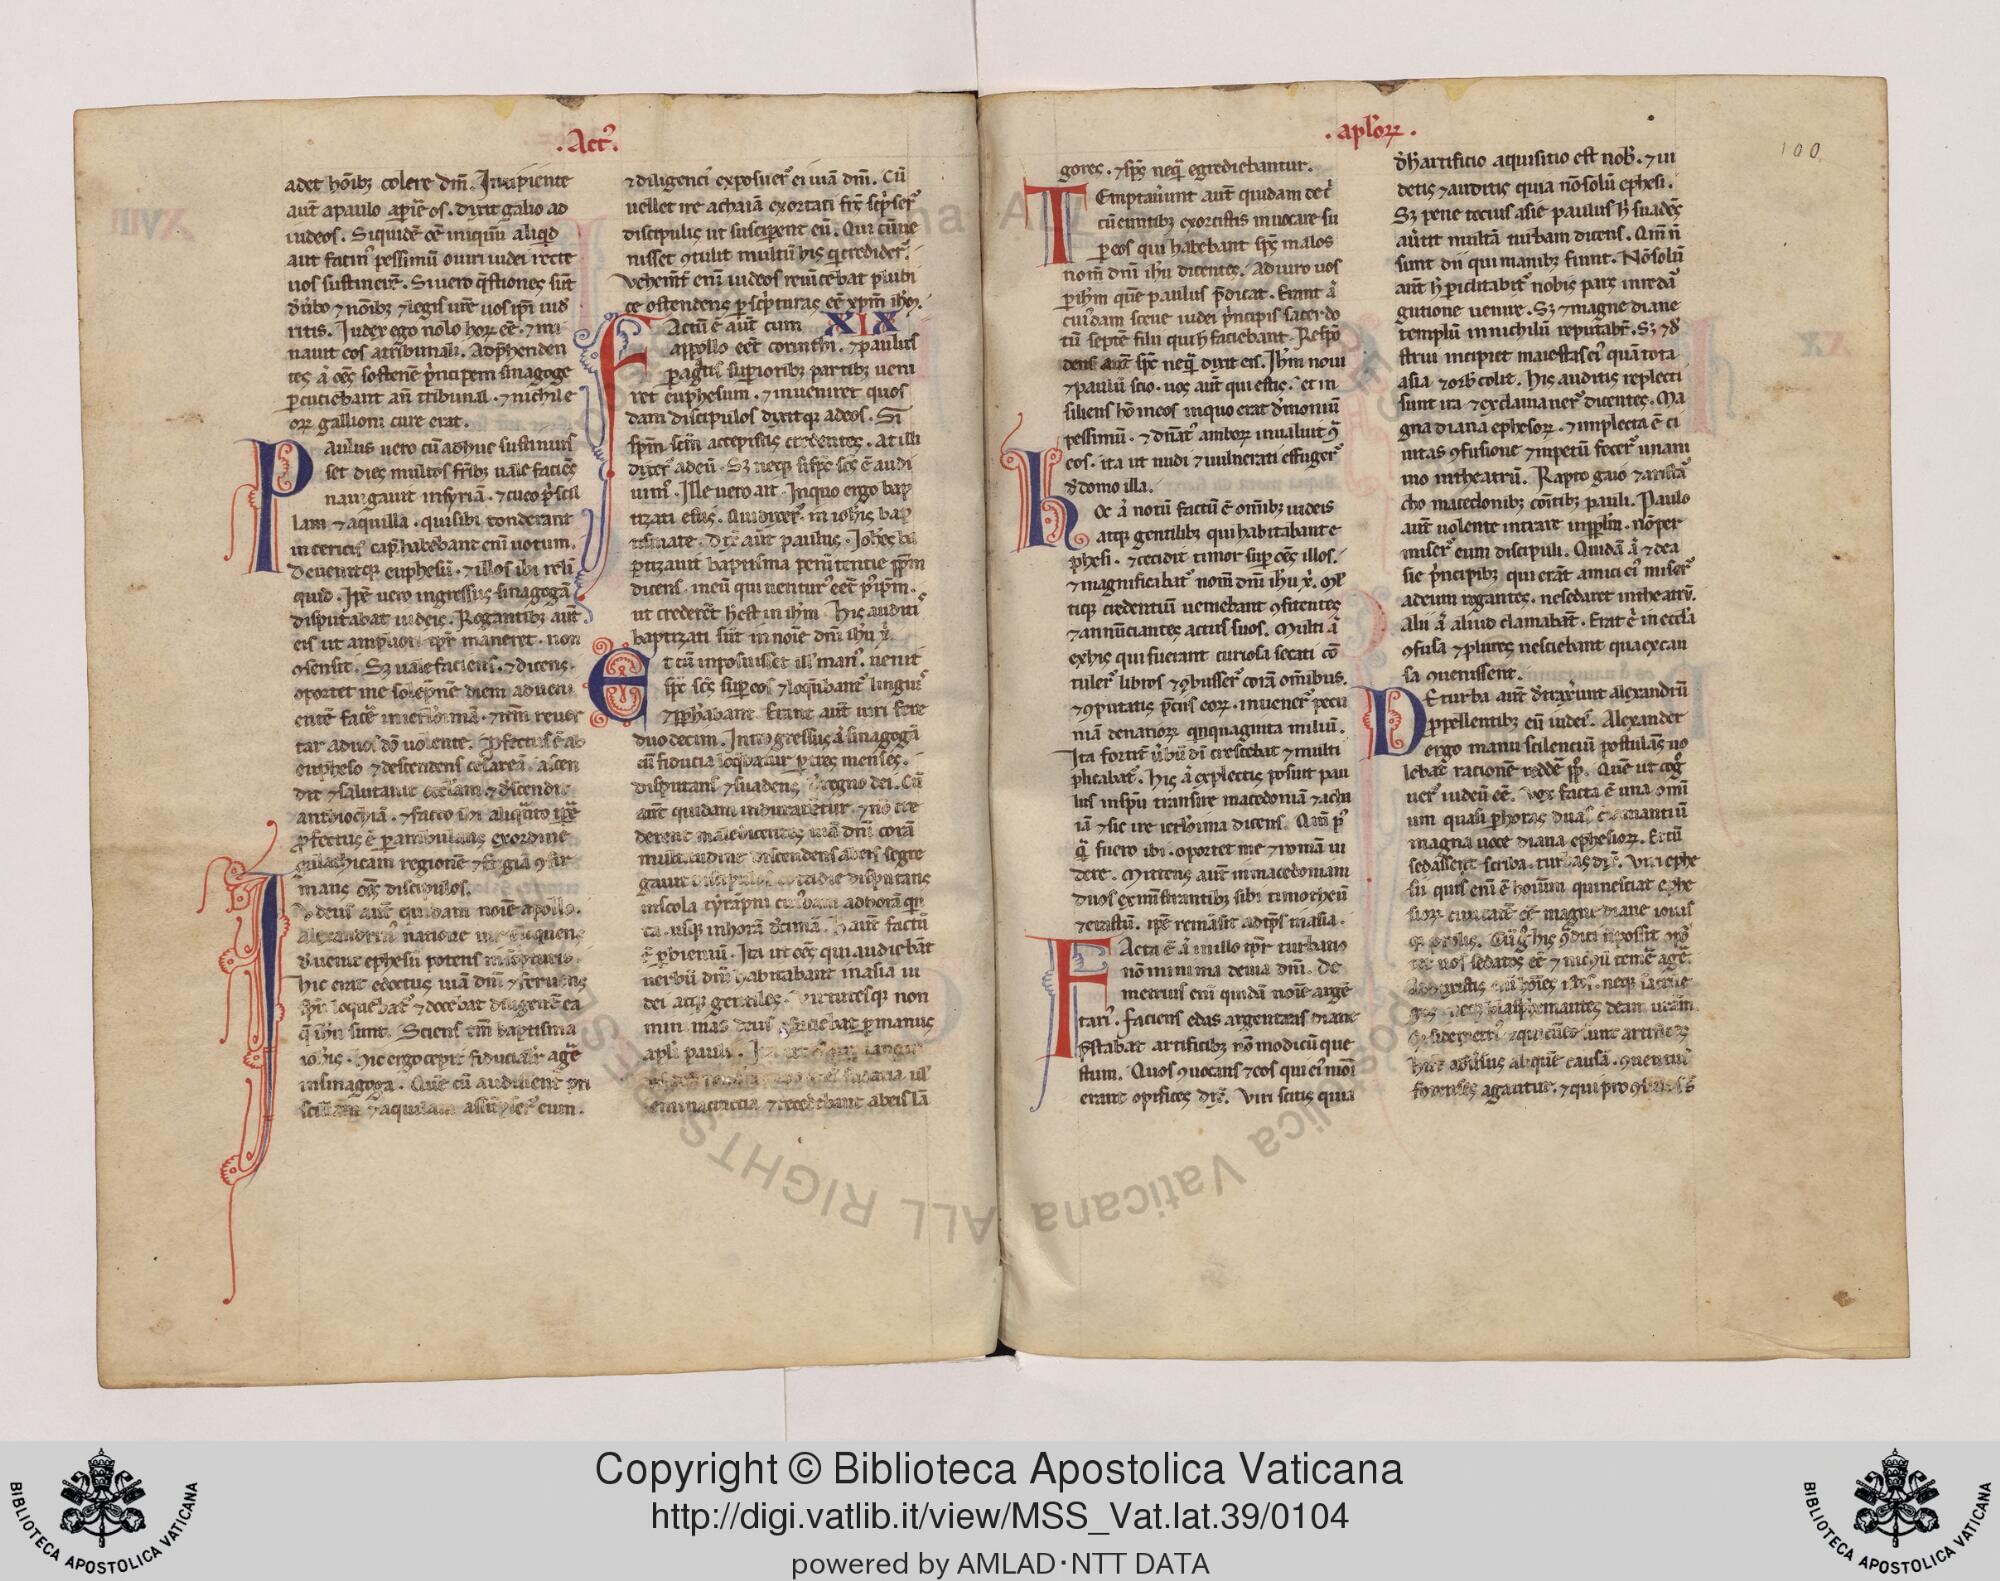 .Act᷒.
adet hoı̄bꝫ colere dm̄. Incipiente
aut̄ apaulo apıē os. dixit galio ad
iudeos. Siquidē eē iniqm̄ aliqͥd
aut facin᷒ pessimū o uiri iudei recte
uos sustinerē. Si uero q̄stiones sūt
nauit eos atribunali. Adp̄henden
tes ā oēs sostenē pͥncipem sinagoge
ꝑcuciebant an̄ tribunal. ⁊ nichil e
oꝝ gallioni cure erat.
Paulus uero cū adhuc sustinuis
set dies multos frībꝫ uale faciēs
nauigauit in syriā. ⁊ cū eo pͥscil
lam ⁊ aquilla. qui sibi tonderant
in cencris cap̄. habebant enī uotum.
Deuenitqꝫ euphesū. ⁊ illos ibi reli
quid. Ip̄e uero ingressus sinagogā
disputabat iudeis. Rogantibꝫ aut̄
eis ut ampliori tp̄r maneret. non
ꝯsensit. Sꝫ uale faciens. ⁊ dicens.
oportet me solēpne diem adueni
tar ad uos dō uolente. ꝓfectus ē ab
eupheso ⁊ descendens cesareā. ascen
anthiochiā. ⁊ facto ibi aliqͣnto tp̄re
ꝓfectus ē ꝑambulans ex ordine
galathicam regionē ⁊ frigiā ꝯfir
mans oēs discipulos.
Iudeus aut̄ quidam noı̄e apollo.
Hic erat edoctus uiā dnı̄ ⁊ feruens
q̄ ihu sunt. Sciens tm̄ baptisma
ioh̄is. hic ergo cepit fiducialr̄ agē
in sinagoga. Quē cū audissent pri
scilla ⁊ aquila assūpser᷒ eum.
⁊ diligenci᷒ exposuer᷒ ei uiā dm̄. Cū
uellet ire achaiā exortati frēs scp̄ser᷒
discipulis ut susciꝑent eū. Qui cū ue
nisset ꝯtulit multū his qͥ credider᷒.
Vehemēt̄ enī iudeos reuīcebat publi
ce ostendens ꝑ scpͥturas eē xp̄m ihm̄.
XIX
Factū ē aut̄ cum
appollo eēt corinthi. ⁊ paulus
ꝑagͣtis suꝑioribꝫ partibꝫ ueni
ret euphesum. ⁊ inueniret quos
dam discipulos dixitqꝫ ad eos. Si
sp̄m sc̄m accepistis credentes. At illi
dixer᷒ ad eū. Sꝫ neqꝫ si sp̄c sc̄s ē audi
uim᷒. Ille uero ait. In quo ergo bap
tizati estis. Qui dixer᷒. in ioh̄is bap
tismate. dix̄ aut̄ paulus. Ioh̄es ba
ptizauit baptisma penitentie pp̄lm
dicens. in eū qui uentur᷒ eēt p᷒ ip̄m.
ut crederēt h̄ est in ihm̄. His auditi᷒
baptizati sūt in noı̄e dnı̄ ihu x̄.
Et cū inposuisset ill᷒ man᷒. uenit
sp̄c sc̄s suꝑ eos ⁊ loqūbant᷒ linguis
⁊ ꝓph̄abant. Erant aut̄ uiri fere
duodecim. Introgressus ā sinagogā
cū fiducia loq̄batur ꝑ tres menses.
disputans ⁊ suadens d̄ regno dei. Cū
aut̄ quidam indurarētur. ⁊ nō cre
derent maledicentes uiā dnı̄ corā
multitudine discendens ab eis segre
gauit discipulos cottidie disputans
ta. usqꝫ in horā decimā. h̄ aut̄ factū
ē ꝑ bienniū. Ita ut oēs qui audiebāt
uerbū dm̄ habitabant in asia iu
dei atqꝫ gentiles. Virtutesqꝫ non
min᷒ mas deus faciebat ꝑ manus
apl̄i pauli.
.apl̄oꝝ.
100
gores. ⁊ sp̄c neqͣ egrediebantur.
Temptauerunt aut̄ quidam de cͥ
cūeuntibꝫ exorcistis inuocare su
ꝑ eos qui habebant sp̄c malos
nom̄ dnı̄ ihu dicentes. Adiuro uos
ꝑ ihm̄ quē paulus p̄dicat. Erant ā
cuiꝰdam sceue iudei pͥncipis sacerdo
tū septē filii qui h̄ faciebant. Respō
dens aut̄ sp̄c neqͣ dixit eis. Ihm̄ noui
⁊ paulū scio. uos aut̄ qui estis. Et in
siliens hō in eos in quo erat demoniū
pessimū. ⁊ dn̄at᷒ amboꝝ inualuit ꝯ
eos. ita ut nudi ⁊ uulnerati effuger᷒
d̄ domo illa.
Hoc ā notū factū ē om̄ibꝫ iudeis
atqꝫ gentilibꝫ qui habitabant e
phesi. ⁊ cecidit timor suꝑ oēs illos.
⁊ magnificabat᷒ nom̄ dnı̄ ihu x̄. ml̄
tiqꝫ credentiū ueniebant ꝯfitentes
⁊ annūciantes actus suos. Multi ā
ex his qui fuerant curiosa secati cō
tuler᷒ libros ⁊ ꝯbusser᷒ corā om̄ibus.
⁊ ꝯputatis p̄ciis eoꝝ. inuener᷒ pecu
niā denarioꝝ qͥnquaginta miliū.
Ita fortit̄ ūbū dı̄ crescebat ⁊ multi
plicabat᷒. His ā expletis posuit pau
lus in spū transire macedoniā ⁊ achi
iā ⁊ sic ire ierl̄ima dicens. Qm̄ p᷒
qͣ fuero ibi. oportet me ⁊ romā ui
dere. Mittens aut̄ in macedoniam
duos ex ministrantibꝫ sibi timotheū
⁊ erastū. ip̄e remāsit ad tp̄s in asia.
Facta ē ā in illo tp̄r turbatio
nō minima de uia dm̄. De
metrius enī quidā noı̄e argē
tari᷒. faciens edas argenteas diane
p̄stabat artificibꝫ nō modicū que
stum. Quos ꝯuocans ⁊ eos qui ei᷒mōi
erant opifices dix̄. Viri scitis quia
d̄ h̄ artificio aquisitio est nob̄. ⁊ ui
detis ⁊ auditis quia nō solū ephesi.
Sꝫ pene tocius asie paulus h̄ suadēs
aūtit multā turbam dicens. Qm̄ n̄
sunt dii qui manibꝫ fiunt. Nō solū
aut̄ h̄ ꝑiclitabit᷒ nobis pars in redā
gutione uenire. Sꝫ ⁊ magne diane
templū in nichilū reputabr̄. Sꝫ ⁊ d̄
strui incipiet maiestas ei᷒ quā tota
asia ⁊ orb᷒ colit. His auditis repleti
sunt ira ⁊ exclamauer᷒ dicentes. Ma
gna diana ephesoꝝ. ⁊ impleta ē ci
uitas ꝯfusione ⁊ inpetū fecer᷒ unani
mo in theatrū. Rapto gaio ⁊ aristā
cho macedonibꝫ comı̄tibꝫ pauli. Paulo
aut̄ uolente intrare in pp̄lm. nō per
miser᷒ eum discipuli. Quidā ā ⁊ de a
sie pͥncipibꝫ qui erāt amici ei᷒ miser᷒
ad eum rogantes. ne se daret in theatrū.
Alii ā aliud clamabāt. Erat ē in eccl̄a
ꝯfusa ⁊ plures nesciebant qua ex cau
sa ꝯuenissent.
De turba aut̄ detraxerunt alexandrū
ꝓpellentibꝫ eū iudeis. Alexander
ergo manu scilenciū postulās uo
lebat racionē reddē pp̄lo. Quē ut cog᷒
uer᷒ iudeū eē. vox facta ē una omı̄
um quasi ꝑ horas duas clamantiū
magna uoce diana ephesioꝝ. Et cū
sedasset scriba turbas dix̄. Viri ephe
sii quis enī ē homı̄um qui nesciat ephe
sioꝝ ciuitatē eē magne diane iouis
forenses agantur. ⁊ qui pro
Copyright © Biblioteca Apostolica Vaticana
http://digi.vatlib.it/view/MSS_Vat.lat.39/0104
powered by AMLAD·NTT DATA
BIBLIOTECA APOSTOLICA VATICANA
BIBLIOTECA APOSTOLICA VATICANA